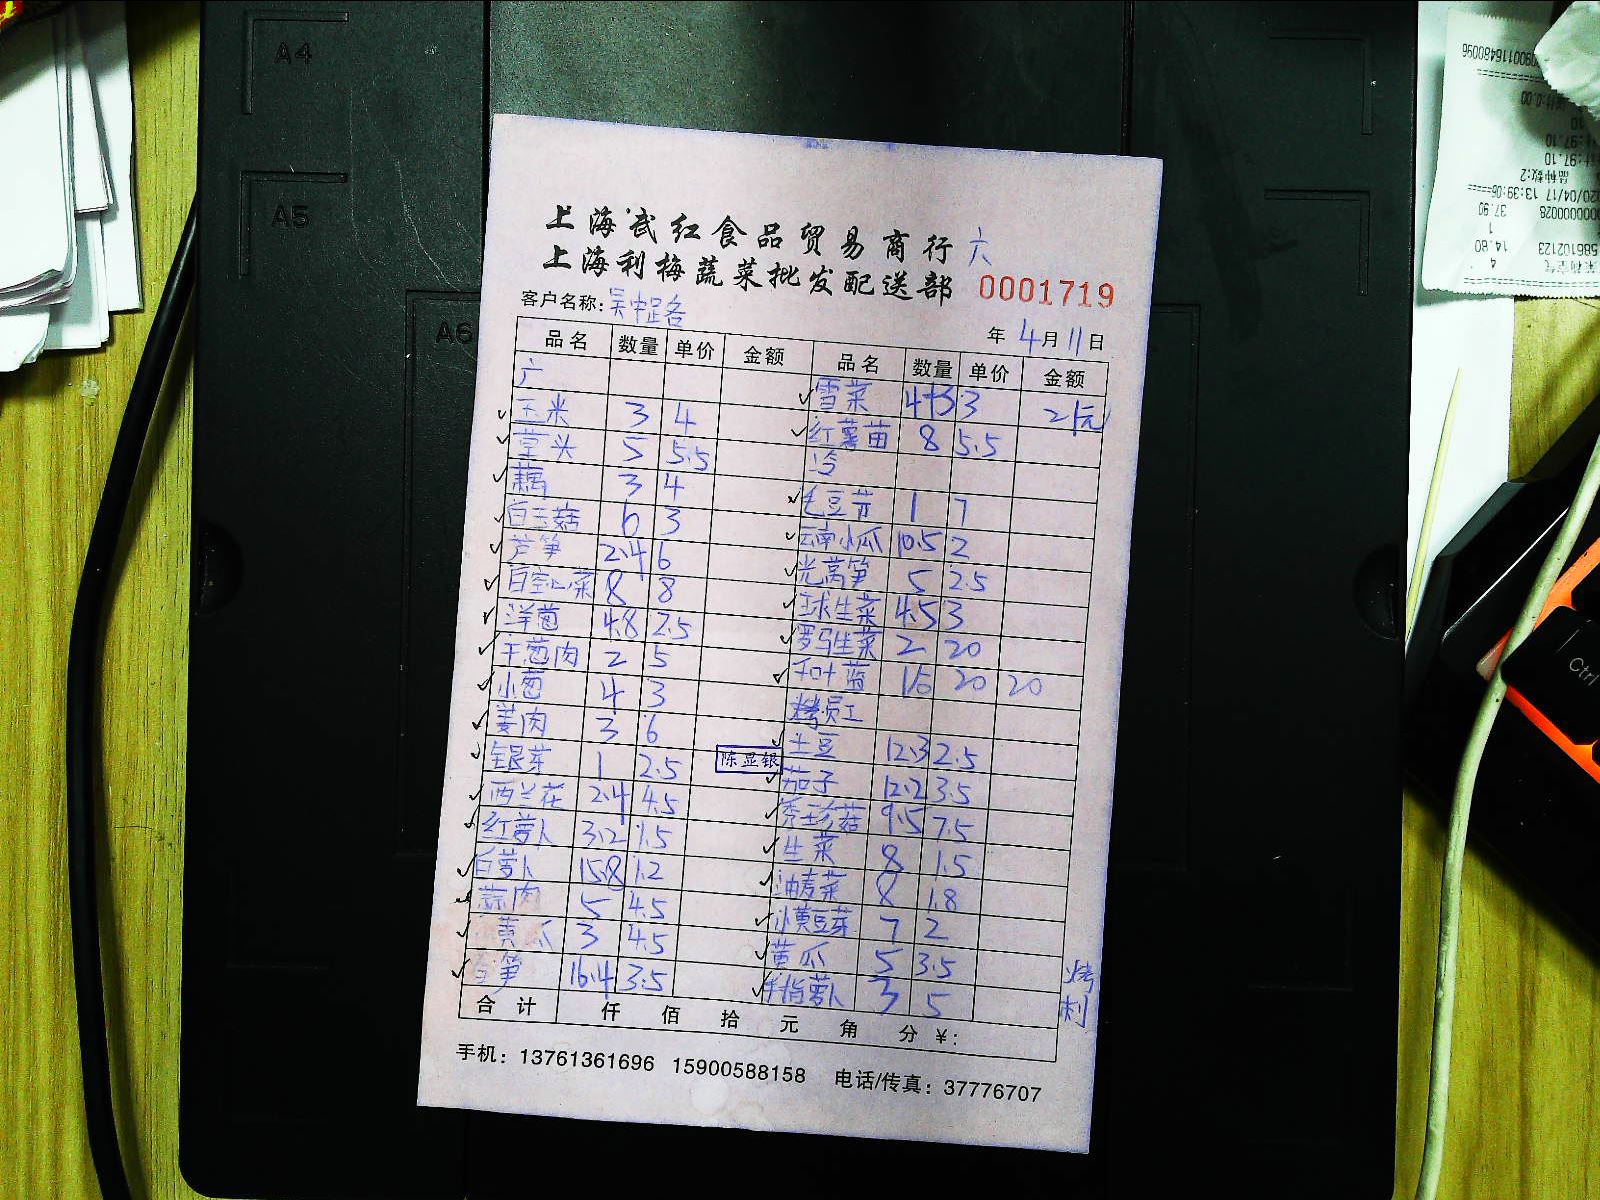 上海武红食品贸易商行 六
上海利梅蔬菜批发配送部 0001719
客户名称: 吴中路
年 4月11日
品名 数量 单价 金额 品名 数量 单价 金额
六
玉米 3 4
3 21元
雪菜
堂头 5 5.5
红薯苗 8 5.5
藕 3 4
冷
白玉菇 6 3
毛豆节 1 7
芦笋 2.4 6
云南小瓜 10.5 2
白空心菜 8 8
光莴笋 5 2.5
洋葱 4.8 2.5
球生菜 4.5 3
干葱肉 2 5
罗马生菜 2 20
小葱 4 3
20 20
姜肉 3 6
员工
银芽 1 2.5
陈显银
土豆 12.3 2.5
西兰花 2.4 4.5
茄子 12.2 3.5
红萝卜 3.2 1.5
秀珍菇 9.5 7.5
白萝卜 15.8 1.2
生菜 8 1.5
蒜肉 5 4.5
油麦菜 8 1.8
黄瓜 3 4.5
小黄豆芽 7 2
笋 16.4 3.5
黄瓜 5 3.5
手指萝卜 3 5
合计 仟 佰 拾 元 角 分 ¥:
手机: 13761361696 15900588158 电话/传真: 37776707
A4
A5
A6
Ctrl